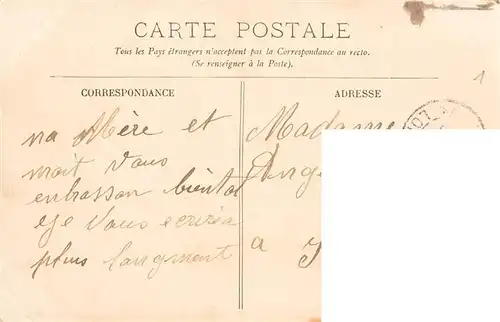 CARTE POSTALE
Tous les Pays étrangers n'acceptent pas la Correspondance au recto.
(Se renseigner à la Poste).
CORRESPONDANCE
ma Mère et
moit vous
enbrasson bientot
ge vous ecrirà
plus longment
ADRESSE
Madame
a
1